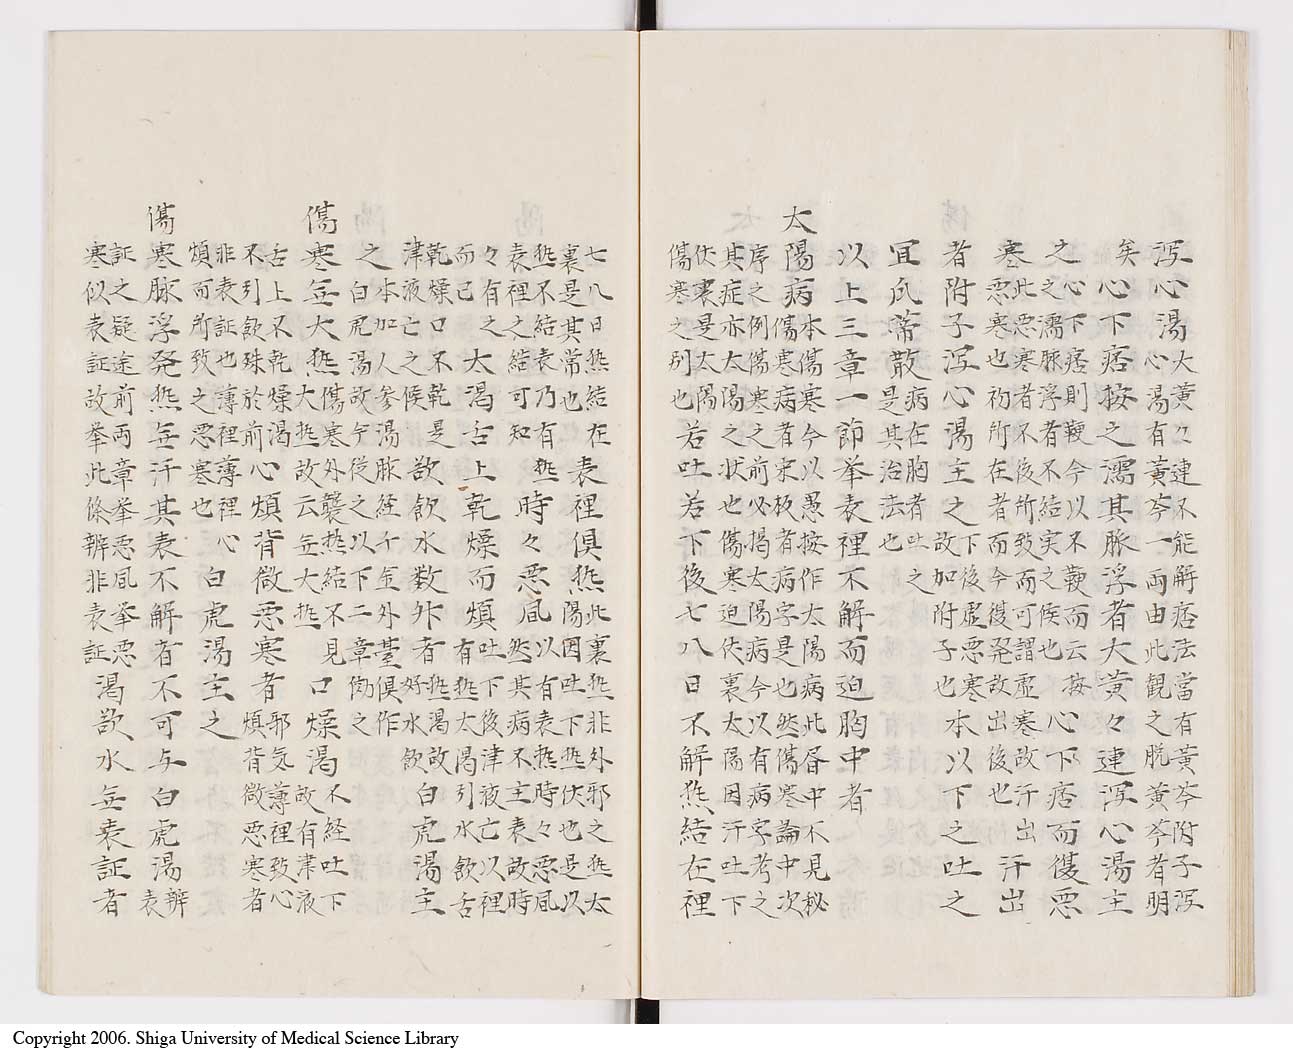 泻心湯大黄々連不能解痞法當有黄芩附子泻
心湯有黄芩一両由此観之脱黄芩者明
矣心下痞按之濡其脉浮者大黄々連泻心湯主
之心下痞則鞕今以不鞕而云按
之濡脉浮者不結実之候也心下痞而復悪
寒此悪寒者不後所致而可謂虚寒故汗出
悪寒也初所在者而今復発故出後也汗出
者附子泻心湯主之下後虚悪寒
故加附子也本以下之吐之
宜瓜蒂散病在胸者吐之
是其治法也
以上三章一節挙表裡不解而迫胸中者
太陽病本傷寒今以愚按作太陽病此昏中不見秘
傷寒病者宋板者病字是也然傷寒論中次
序之例傷寒之前必掲太陽病今以有病字考之
其症亦太陽之状也傷寒迫伏裏太陽因汗吐下
伏裏是太陽
傷寒之別也若吐若下後七八日不解熱結在裡
七八日熱結在
裏是其常也表裡俱熱此裏熱非外邪之熱太
陽因吐下熱伏也是以
熱不結表乃有熱
表裡之結可知時々悪風以有表熱時々悪風
然其病不主表故時
々有之
而已大渇舌上乾燥而煩吐下後津液亡以裡
有熱大渇引水飲舌
乾燥口不乾是
津液亡之候欲飲水数升者熱渇故
好水飲白虎湯主
之本加人参湯脉経千金外臺俱作
白虎湯故今從之以下二章傚之
傷寒無大熱傷寒外襲熱結不見
大熱故云無大熱口燥渇不経吐下
故有津液
舌上不乾燥渇
不引飲殊於前心煩背微悪寒者邪気薄裡致心
煩背微悪寒者
非表証也薄裡薄裡心
煩而所致之悪寒也白虎湯主之
傷寒脉浮発熱無汗其表不解者不可与白虎湯辨
表
証之疑途前両章挙悪風挙悪
寒似表証故挙此條辨非表証渇欲水無表証者
Copyright 2006. Shiga University of Medical Science Library